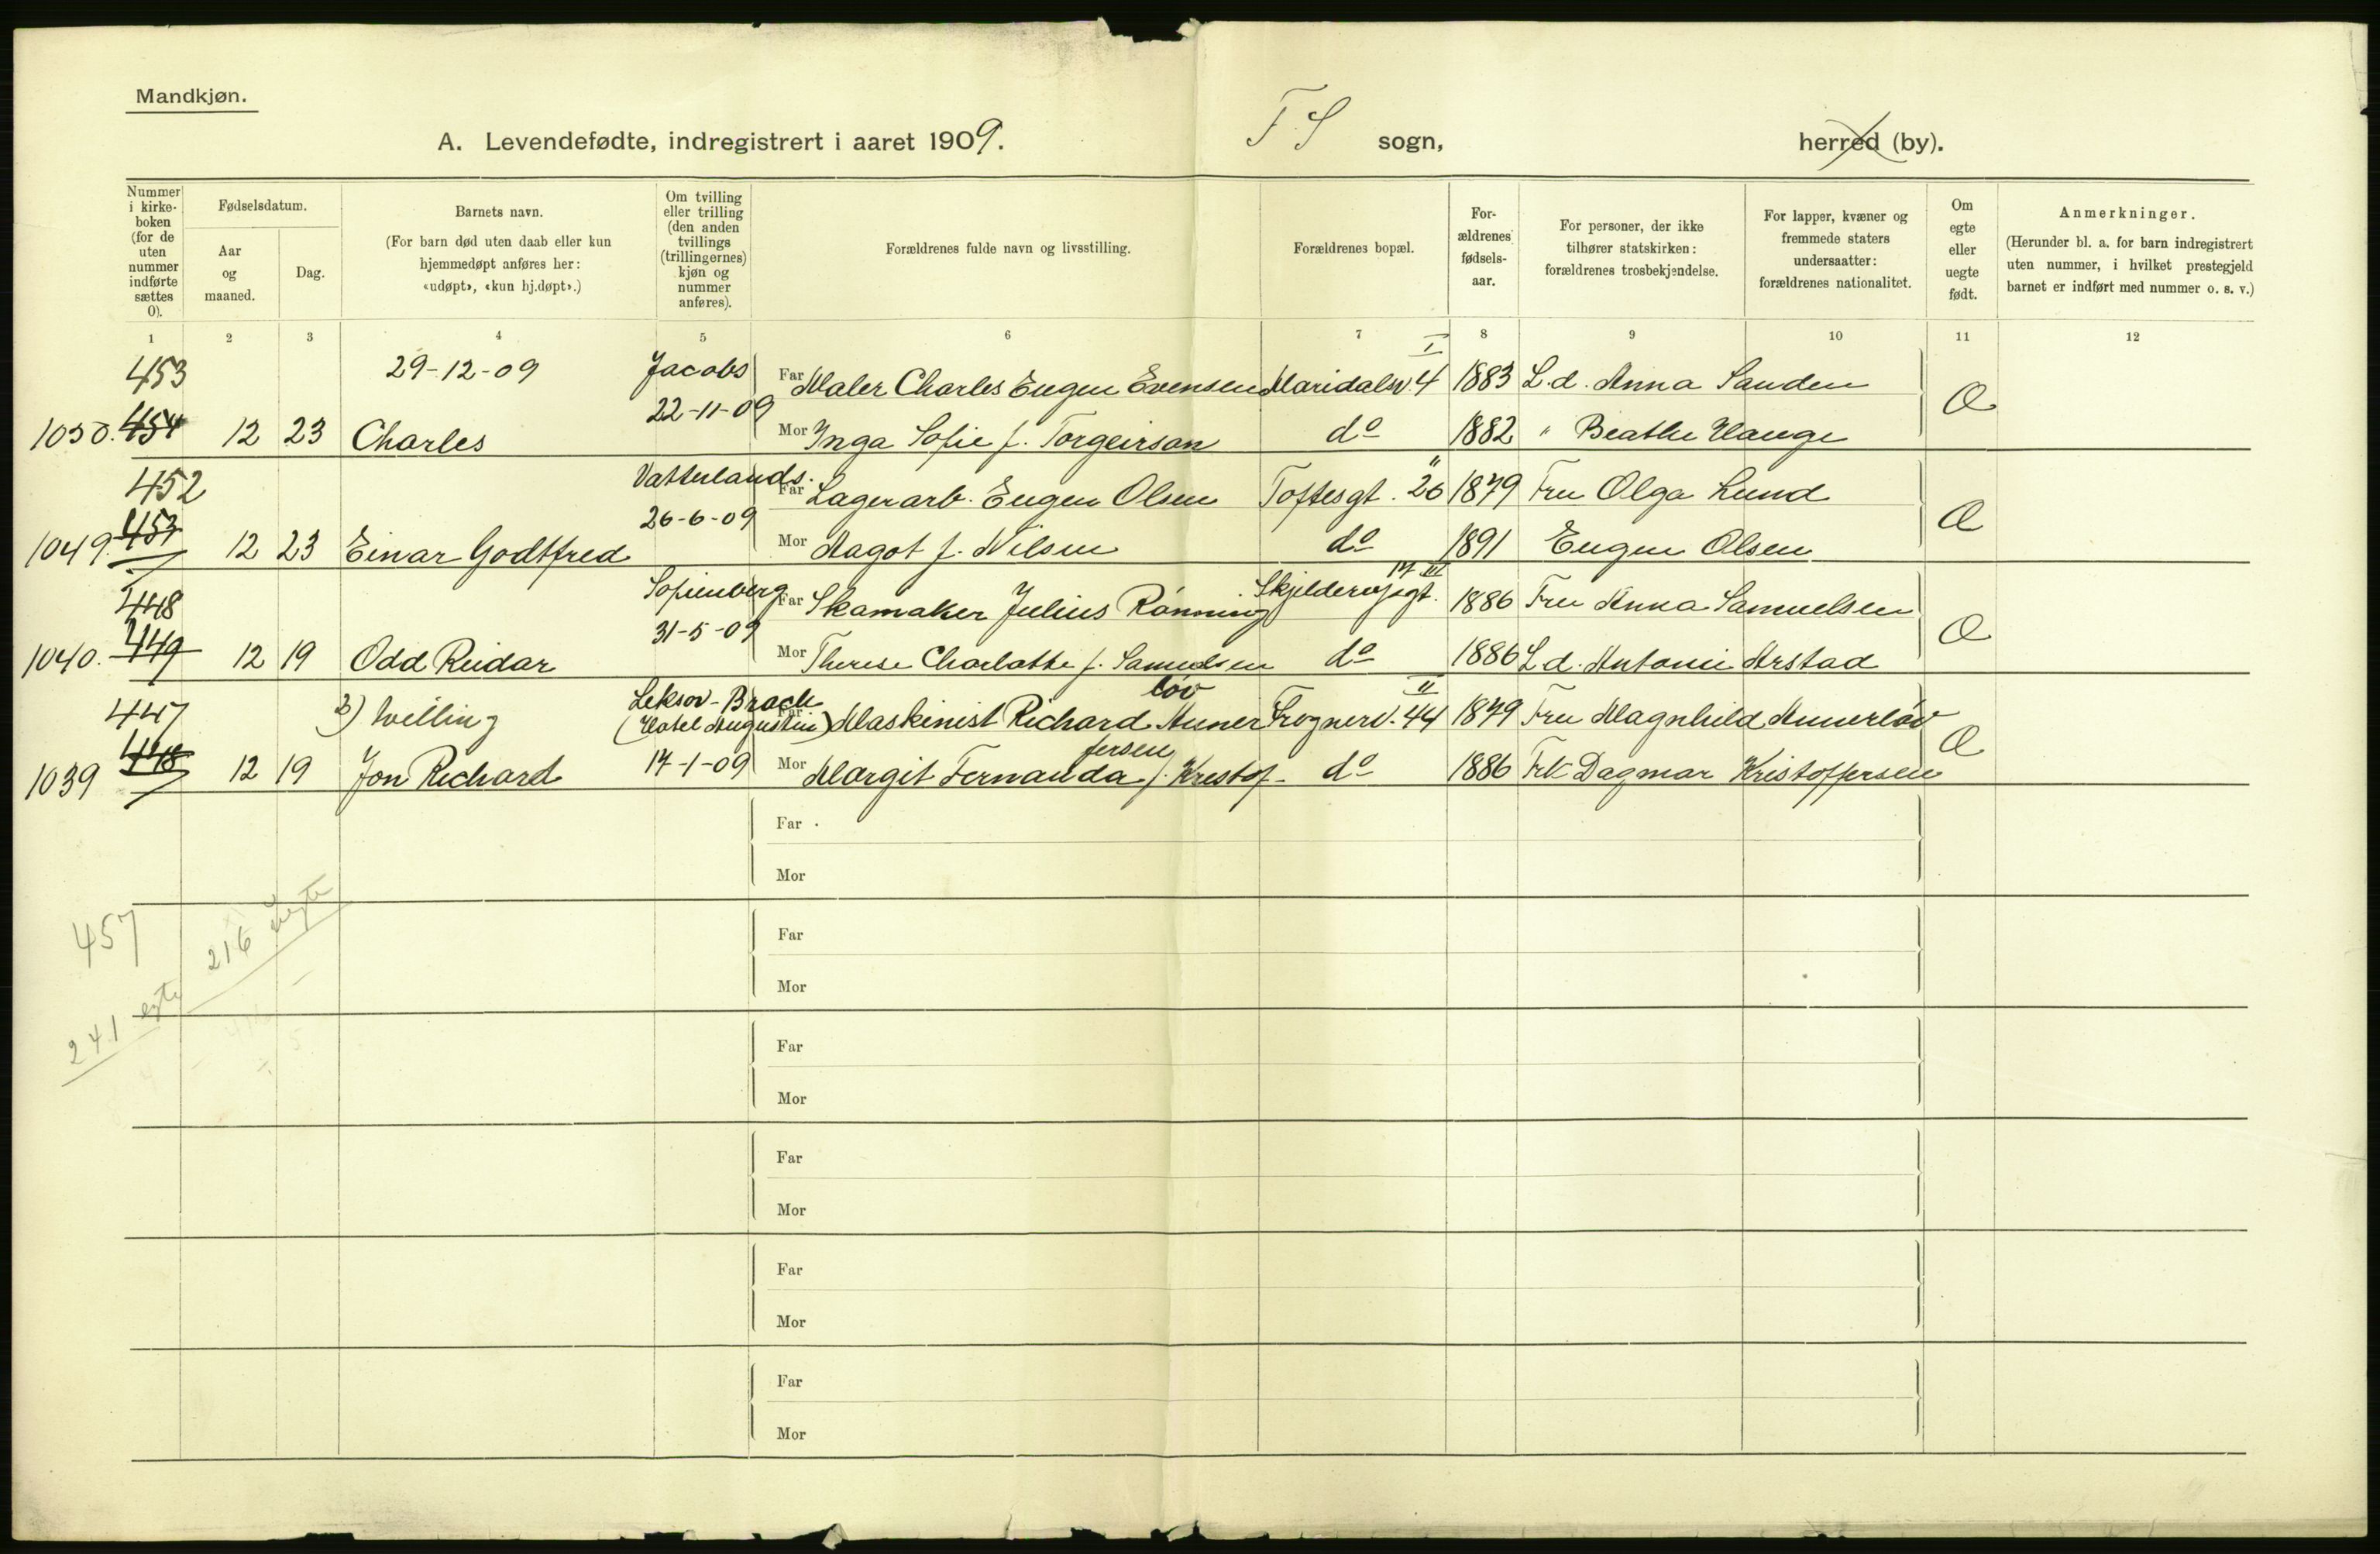 Mandkjøn.
A. Levendefødte, indregistrert i aaret 1909. F. S sogn, herred (by).
Nummer i kirke-boken (for de uten nummer indførte sættes 0).
Fødselsdatum.
Aar og maaned.
Dag.
Barnets navn.
(For barn død uten daab eller kun hjemmedøpt anføres her: «udøpt», «kun hj.døpt».)
Om tvilling eller trilling (den anden tvillings (trillingernes) kjøn og nummer anføres).
Forældrenes fulde navn og livsstilling.
Forældrenes bopæl.
For-ældrenes fødsels-aar.
For personer, der ikke tilhører statskirken: forældrenes trosbekjendelse.
For lapper, kvæner og fremmede staters undersaatter: forældrenes nationalitet.
Om egte eller uegte født.
Anmerkninger.
(Herunder bl. a. for barn indregistrert uten nummer, i hvilket prestegjeld barnet er indført med nummer o. s. v.)
1 2 3 4 5 6 7 8 9 10 11 12
453 29-12-09 Jacobs Far Maler Charles Eugen Evensen Maridalsv. 4 I 1883 L.d. Anna Sanden
1050. 454 12 23 Charles 22-11-09 Mor Inga Sofie f. Torgeirson do 1882 " Beathe Hauge
452 Vatterlands. Far Lagerarb. Eugen Olsen Toftesgt. 26 " 1879 Fru Olga Lund
1049. 453 12 23 Einar Godtfred 26-6-09 Mor Magot f. Nilsen do 1891 Eugen Olsen
448 Sofienberg Far Skomaker Julius Rønning Skjelderupsgt. 17 III 1886 Fru Anna Samuelsen
1040. 449 12 19 Odd Reidar 31-5-09 Mor Therese Charlotte f. Samuelsen do 1886 L.d. Antonie Arstad
447 2) Willing Leksov-Brach (Hotel Augustin) Far Maskinist Richard Auner løv Frognerv. 44 II 1879 Fru Magnhild Aunerløv
1039 448 12 19 Jon Richard 17-1-09 Mor Margit Fernanda f. Kristof- fersen do 1886 Frk Dagmar Kristoffersen
Far
Mor
457 216 uegte
Far
Mor
241 egte
Far
Mor
Far
Mor
Far
Mor
Far
Mor